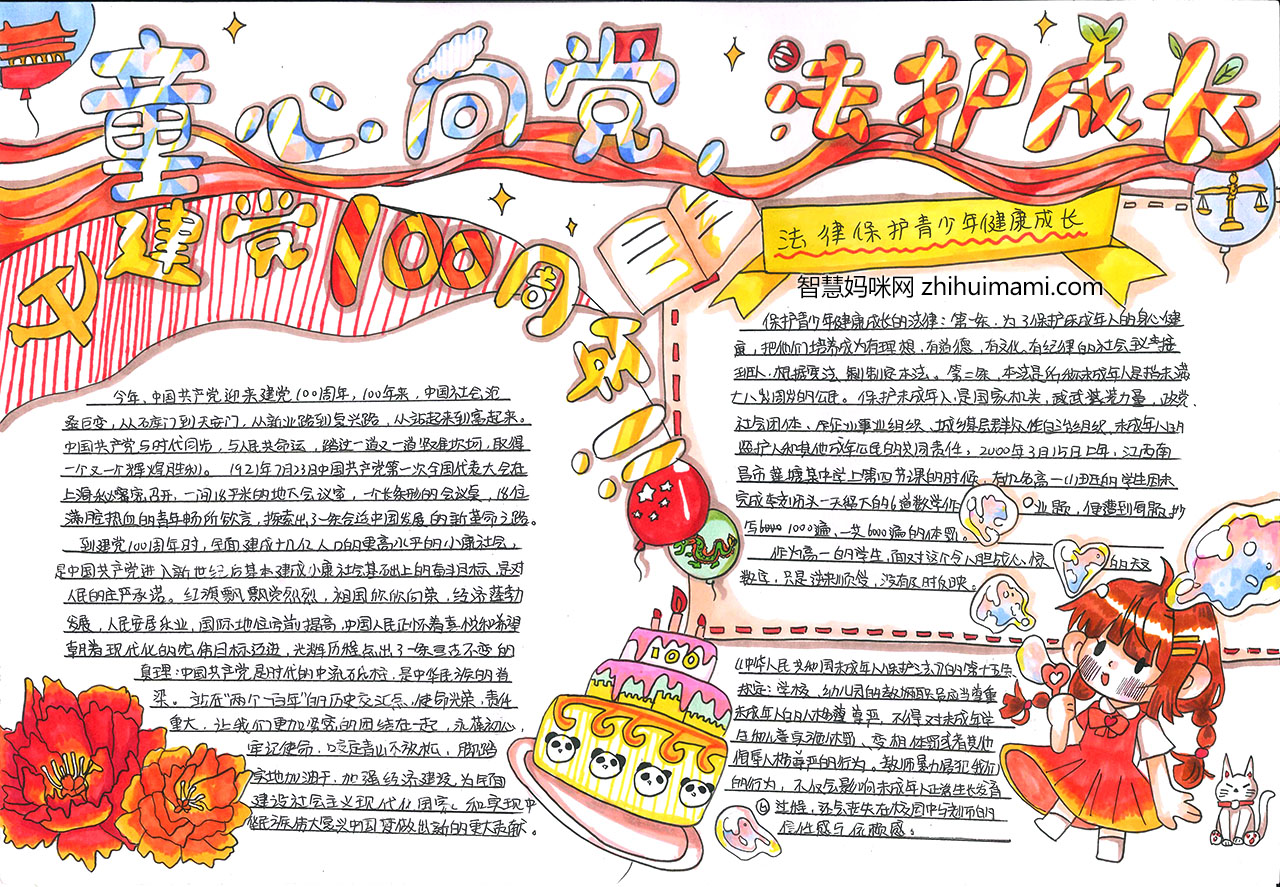 童心向党,法护成长
建党100周年
法律保护青少年健康成长
智慧妈咪网 zhihuimami.com
今年,中国共产党迎来建党100周年,100年来,中国社会沧
桑巨变,从石库门到天安门,从新业路到复兴路,从站起来到富起来。
中国共产党与时代同步,与人民共命运,踏过一道又一道艰难坎坷,取得
一个又一个辉煌胜利。1921年7月23日中国共产党第一次全国代表大会在
上海秘密召开,一间18平米的地大会议室,一个长条形的会议桌,
满腔热血的青年畅所欲言,探索出了一条合适中国发展的新革命之路。
到建党100周年时,全面建成十几亿人口的更高水平的小康社会,
是中国共产党进入新世纪后基本建成小康社会基础上的奋斗目标,是对
人民的庄严承诺。红旗飘飘党烈烈,祖国欣欣向荣,经济蓬勃
发展,人民安居乐业,国际地位空前提高,中国人民正怀着喜悦和希望
朝着现代化的宏伟目标迈进,光辉历程点出了一条亘古不变的
真理:中国共产党是时代的中流砥柱,是中华民族的脊
梁。站在“两个一百年”的历史交汇点,使命光荣,责任
重大,让我们更加坚密的团结在一起,永葆初心,
牢记使命,咬定青山不放松,脚踏
实地加油干,加强经济建设,为民富
建设社会主义现代化国家,和实现中
华民族伟大复兴中国梦做出新的重大贡献。
保护青少年健康成长的法律:第一条,为了保护未成年人的身心健
康,把他们培养成为有理想,有道德,有文化,有纪律的社会主义接
班人,根据宪法,制制定本法。第二条,本法是所称未成年人是指未满
十八岁周岁的公民。保护未成年人,是国家机关,政武装装力量,政党,
社会团体、企业事业组织、城乡基层群众性自治组织、未成年人的
监护人和其他成年公民的共同责任。2000年3月15日上午,江西南
昌市莲塘某中学上第四节课的时候,有几名高一(1)班的学生因未
完成老师头一天留下的6道数学作业题,便遭到每题抄
写6000 1000遍,共6000遍的体罚。
作为高一的学生,面对这个令人胆战心惊的天文
数字,只是逆来顺受,没有及时反映。
《中华人民共和国未成年人保护法》的第十五条
规定:学校、幼儿园的教职员应当尊重
未成年人的人格尊严,不得对未成年学
生和儿童实施体罚、变相体罚或者其他
侮辱人格尊严的行为。教师暴力侵犯我们
的行为,不仅会影响未成年人正常生长发育
过程,还会丧失在校园中与老师的
信性感与依赖感。